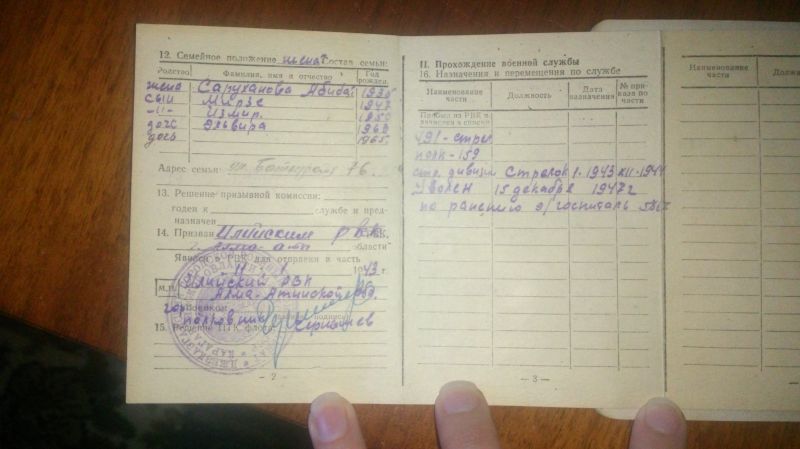 12. Семейное положение женат Состав семьи:
Родство
Фамилия, имя и отчество
Год рожден.
жена Саруханова Абибат 1925
сын Мирзе 1947
-〃- Измир. 1950
дочь Эльвира 1960
дочь 1965
Адрес семьи: ул. 76.
13. Решение призывной комиссии:
годен к службе и пред-
назначен
14. Призван Илийским РВК,
Алма-аты области
Явился в РВК для отправки в часть
1943 г.
М.П. Илийский РВК
Алма-Атинской обл.
Горвоенком
полковник
подпись
15. Решение
— 2 —
II. Прохождение военной службы
16. Назначения и перемещения по службе
Наименование части
Должность
Дата назначения
№ приказа по части
Прибыл из РВК и зачислен в списки
491-стрел
полк-159
стр. дивизии Стрелок 1-1943 XII-1944
Уволен 15 декабря 1947г
по ранению э/госпиталь
— 3 —
Наименование части
Должн